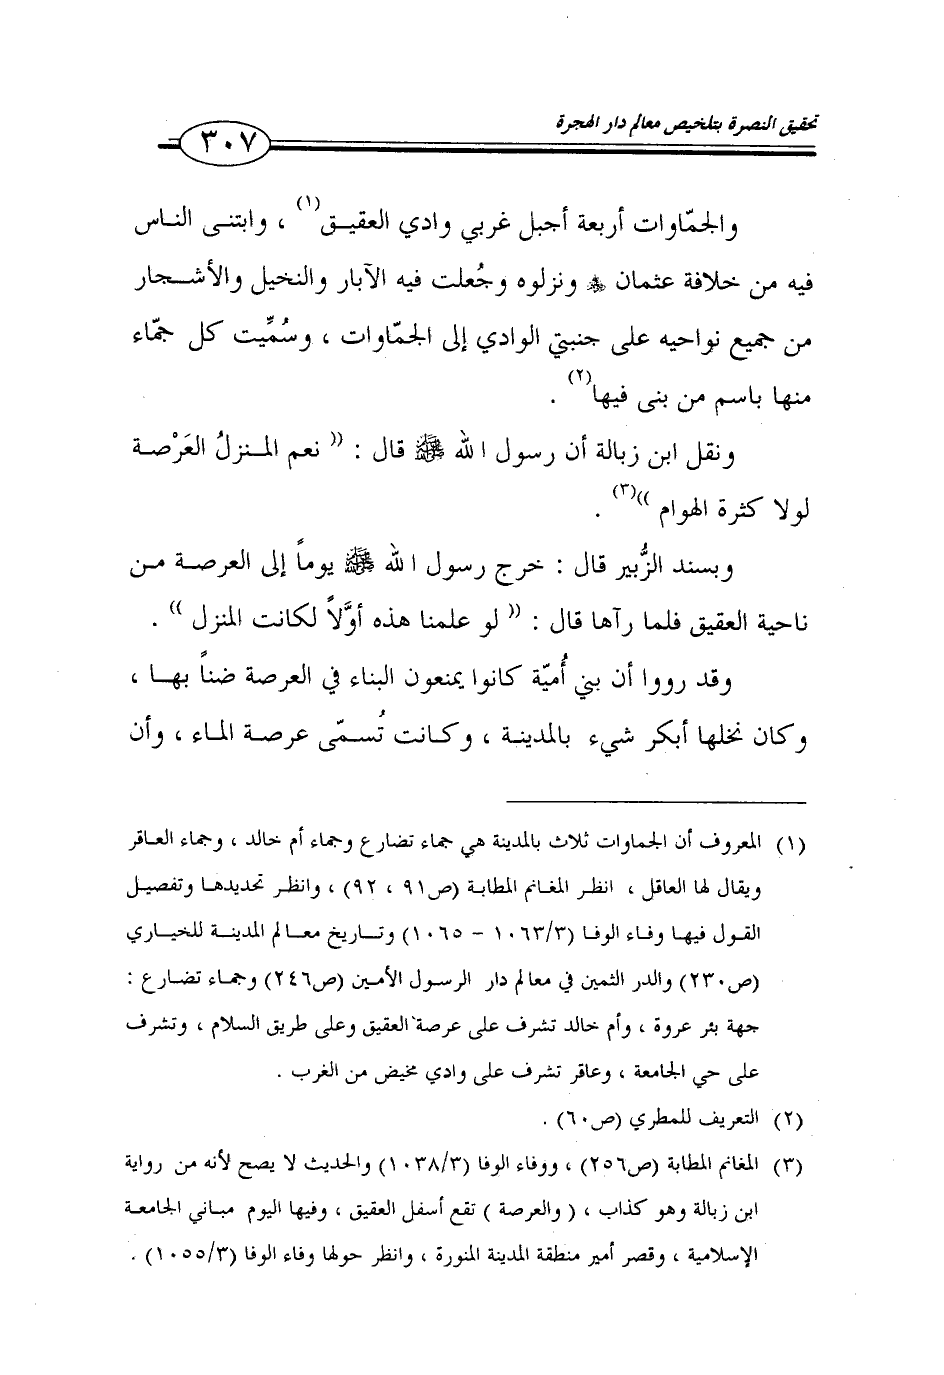 تحقيق النصرة بتلخيص معالم دار الهجرة
٣٠٧
والجمّاوات أربعة أجبل غربي وادي العقيق(١) ، وابتنى الناس
فيه من خلافة عثمان ﷺ ونزلوه وجُعلت فيه الآبار والنخيل والأشجار
من جميع نواحيه على جنبتي الوادي إلى الجمّاوات ، وسُمِّيت كل جمّاء
منها باسم من بنى فيها(٢) .
ونقل ابن زبالة أن رسول الله ﷺ قال : (( نعم المنزلُ العَرْصة
لولا كثرة الهوام ))(٣) .
وبسند الزُّبير قال : خرج رسول الله ﷺ يوماً إلى العرصة من
ناحية العقيق فلما رآها قال : (( لو علمنا هذه أوَّلاً لكانت المنزل )) .
وقد رووا أن بني أُميّة كانوا يمنعون البناء في العرصة ضناً بها ،
وكان نخلها أبكر شيء بالمدينة ، وكانت تُسمّى عرصة الماء ، وأن
(١) المعروف أن الجماوات ثلاث بالمدينة هي جماء تضارع وجماء أم خالد ، وجماء العاقر
ويقال لها العاقل ، انظر المغانم المطابة (ص٩١ ، ٩٢) ، وانظر تحديدها وتفصيل
القول فيها وفاء الوفا (١٠٦٣/٣ - ١٠٦٥) وتاريخ معالم المدينة للخياري
(ص٢٣٠) والدر الثمين في معالم دار الرسول الأمين (ص٢٤٦) وجماء تضارع :
جهة بئر عروة ، وأم خالد تشرف على عرصة العقيق وعلى طريق السلام ، وتشرف
على حي الجامعة ، وعاقر تشرف على وادي مخيض من الغرب .
(٢) التعريف للمطري (ص٦٠) .
(٣) المغانم المطابة (ص٢٥٦) ، ووفاء الوفا (١٠٣٨/٣) والحديث لا يصح لأنه من رواية
ابن زبالة وهو كذاب ، ( والعرصة ) تقع أسفل العقيق ، وفيها اليوم مباني الجامعة
الإسلامية ، وقصر أمير منطقة المدينة المنورة ، وانظر حولها وفاء الوفا (١٠٥٥/٣) .